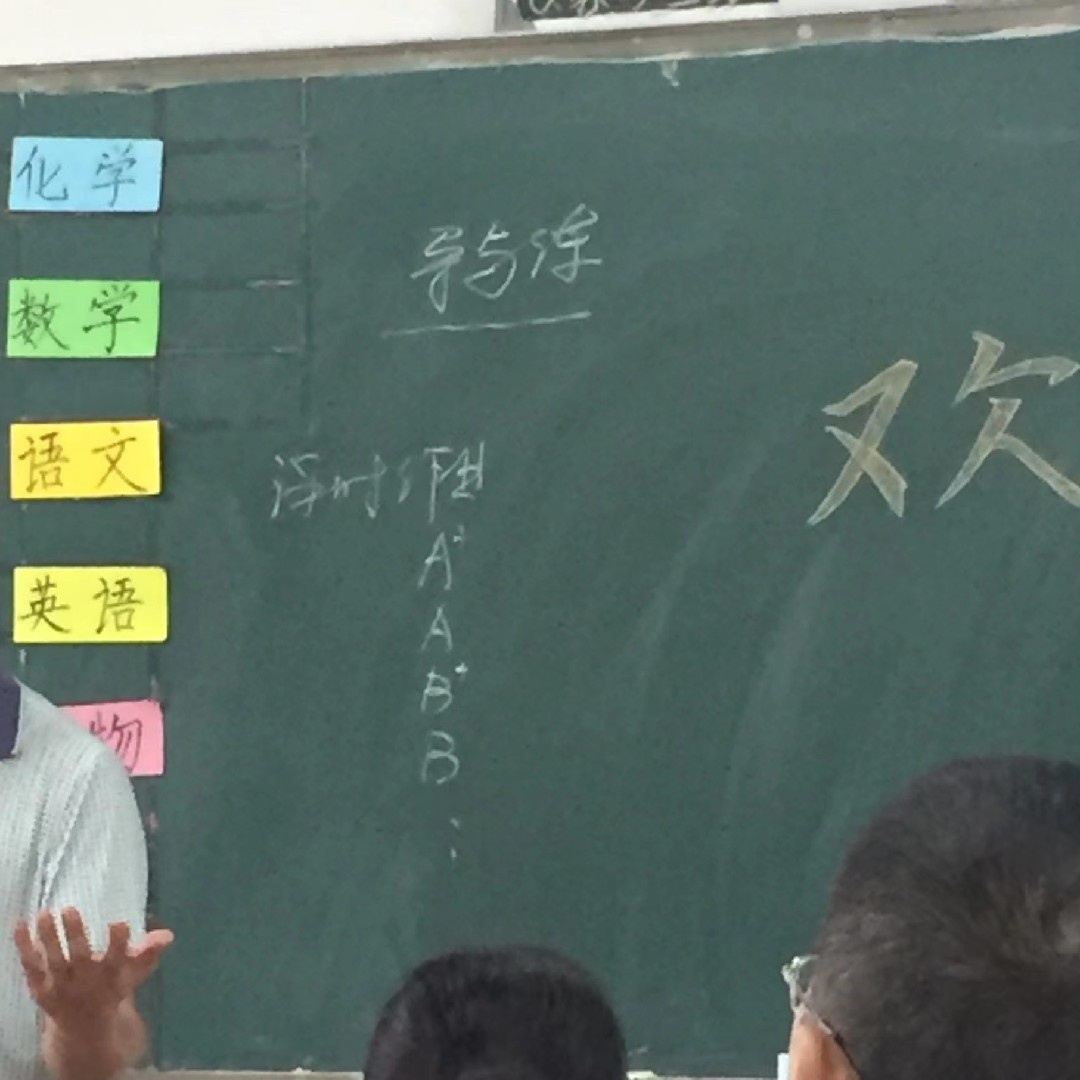 化学
数学
语文
英语
物
导与练
课时作业
A+
A
B+
B
欢